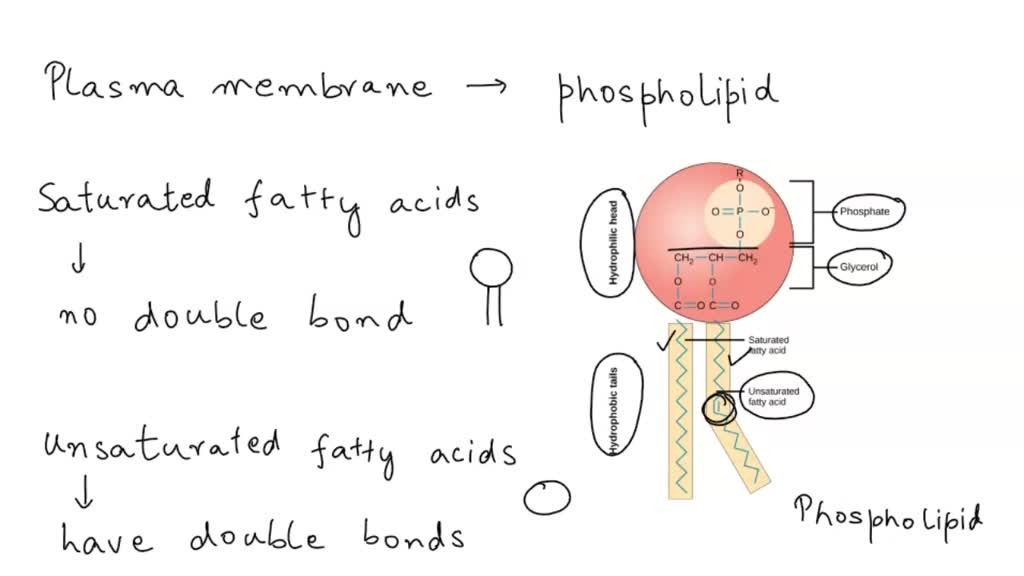 Plasma membrane → phospholipid
Saturated fatty acids
↓
no double bond
Unsaturated fatty acids
↓
have double bonds
Hydrophilic head
R
O
O=P—O⁻
O
CH₂—CH—CH₂
O O
C=O C=O
Phosphate
Glycerol
Hydrophobic tails
Saturated
fatty acid
Unsaturated
fatty acid
Phospholipid